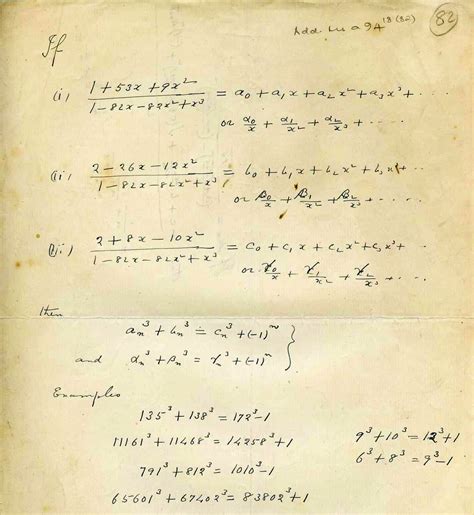 82
Add. Ms a 94¹⁸⁽⁸²⁾
If
(i) (1+53x+9x²)/(1-82x-82x²+x³) = a₀+a₁x+a₂x²+a₃x³+···
or α₀/x + α₁/x² + α₂/x³ + ····
(ii) (2-26x-12x²)/(1-82x-82x²+x³) = b₀+b₁x+b₂x²+b₃x³+···
or β₀/x + β₁/x² + β₂/x³ + ····
(iii) (2+8x-10x²)/(1-82x-82x²+x³) = c₀+c₁x+c₂x²+c₃x³+···
or γ₀/x + γ₁/x² + γ₂/x³ + ····
then
aₙ³+bₙ³ = cₙ³+(-1)ⁿ
and αₙ³+βₙ³ = γₙ³+(-1)ⁿ }
Examples
135³+138³ = 172³-1
11161³+11468³ = 14258³+1
9³+10³ = 12³+1
791³+812³ = 1010³-1
6³+8³ = 9³-1
65601³+67402³ = 83802³+1